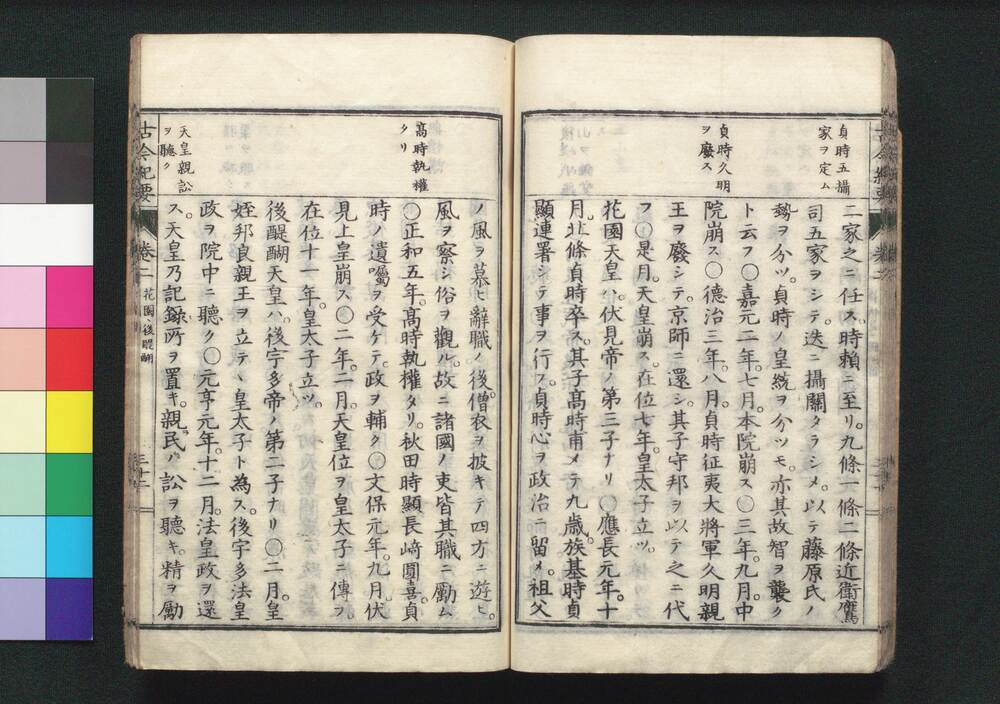 貞時五攝
家ヲ定ム
貞時久明
ヲ廢ス
二家之ニ任ス時賴ニ至リ。九條一條二條近衞鷹
司五家ヲシテ。迭ニ攝關タラシメ。以テ藤原氏ノ
勢ヲ分ツ。貞時ノ皇統ヲ分ツモ。亦其故智ヲ襲ク
ト云フ〇嘉元二年。七月。本院崩ス〇三年。九月。中
院崩ス〇德治三年。八月。貞時征夷大將軍久明親
王ヲ廢シテ。京師ニ還シ。其子守邦ヲ以テ之ニ代
フ〇是月。天皇崩ス。在位七年。皇太子立ツ。
花園天皇ハ。伏見帝ノ第三子ナリ〇應長元年。十
月。北條貞時卒ス。其子高時甫メテ九歳。族基時貞
顯連署シテ事ヲ行フ。貞時心ヲ政治ニ留メ。祖父
高時執權
タリ
天皇親訟
ヲ聽ク
ノ風ヲ慕ヒ辭職ノ後。僧衣ヲ披キテ四方ニ遊ヒ。
風ヲ察シ俗ヲ觀ル。故ニ諸國ノ吏皆其職ニ勵ム
〇正和五年。高時執權タリ。秋田時顯長崎圓喜貞
時ノ遺囑ヲ受ケテ。政ヲ輔ク〇文保元年。九月伏
見上皇崩ス〇二年。二月天皇位ヲ皇太子ニ傳フ。
在位十一年。皇太子立ツ。
後醍醐天皇ハ。後宇多帝ノ第二子ナリ〇二月。皇
姪邦良親王ヲ立テヽ皇太子ト為ス。後宇多法皇
政ヲ院中ニ聽ク〇元亨元年。十二月。法皇政ヲ還
ス。天皇乃記録所ヲ置キ。親ラ民ノ訟ヲ聽キ。精ヲ勵
古今紀要
卷二
花園、後醍醐